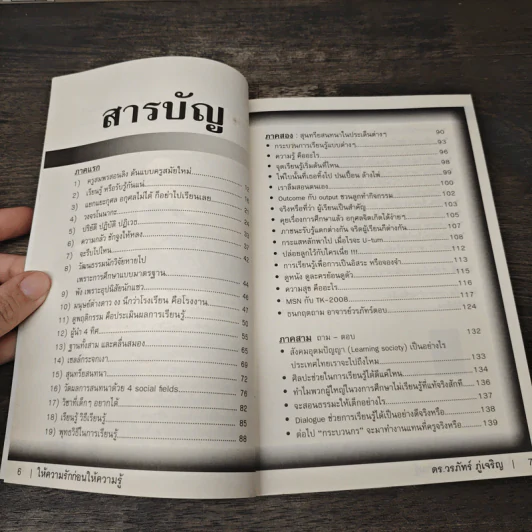 สารบัญ
ภาคแรก
1) ครูสมพรสอนลิง ต้นแบบครูสมัยใหม่
2) เรียนรู้ หรือรับรู้กันแน่
3) แยกแยะกุศล อกุศลไม่ได้ ก็อย่าไปเรียนเลย
4) วงจรโนนากะ
5) ปริยัติ ปฏิบัติ ปฏิเวธ
6) ความกลัว ชักจูงให้หลง
7) จะรับไปไหน 42
8) วัฒนธรรมนักวิจัยหายไป
เพราะการศึกษาแบบมาตรฐาน 44
9) พัง เพราะอุปนิสัยนักแซว 46
10) มนุษย์ต่างดาว งง นึกว่าโรงเรียน คือโรงงาน
11) ดูพฤติกรรม คือประเมินผลการเรียนรู้ 50
12) ผู้นำ 4 ทิศ 55
13) ฐานทั้งสาม และคลื่นสมอง 59
14) เซลล์กระจกเงา 65
15) สุนทรียสนทนา 68
16) วัดผลการสนทนาด้วย 4 social fields 72
17) วิชาที่เด็กๆ อยากได้ 76
18) เรียนรู้ วิธีเรียนรู้ 82
19) พุทธวิธีในการเรียนรู้ 85
88
6 | ให้ความรักก่อนให้ความรู้
ภาคสอง : สุนทรียสนทนาในประเด็นต่างๆ 90
• กระบวนการเรียนรู้แบบต่างๆ 93
• ความรู้ คืออะไร 96
• จุดเรียนรู้เริ่มต้นที่ไหน 98
• ไฟในนั้นที่เธอทิ้งไป ปนเปื้อน ล้างไฟ 99
• เราลืมสอนตนเอง 100
• Outcome กับ output ชวนลูกทำกิจกรรม 102
• จริงหรือที่ว่า ผู้เรียนเป็นสำคัญ 103
• คุยเรื่องการศึกษาแล้ว อกุศลจิตเกิดได้ง่ายๆ 105
• ภาชนะรับรู้แตกต่างกัน จริตผู้เรียนก็ต่างกัน 107
• กระแสหลักพาไป เมื่อไรจะ U-turn 108
• ปล่อยลูกไว้กับใครเนี่ย !!! 112
• การเรียนรู้เพื่อการเป็นอิสระ หรือจองจำ 113
• ดูหนัง ดูละครย้อนดูตัว 114
• ความสุข คืออะไร 116
• MSN กับ TK-2008 117
• ธนกฤตถาม อาจารย์วรภัทร์ตอบ 124
ภาคสาม ถาม – ตอบ 132
• สังคมอุดมปัญญา (Learning society) เป็นอย่างไร
ประเทศไทยเราจะไปถึงไหม 133
• ศิลปะช่วยในการเรียนรู้ได้ดีแค่ไหน 134
• ทำไมพวกผู้ใหญ่ในวงการศึกษาไม่เรียนรู้ที่แท้จริงสักที 136
• จะสอนธรรมะให้เด็กอย่างไร 137
• Dialogue ช่วยการเรียนรู้ได้เป็นอย่างดีจริงหรือ 138
• ต่อไป "กระบวนกร" จะมาทำงานแทนที่ครูจริงหรือ 139
ดร.วรภัทร์ ภู่เจริญ | 7